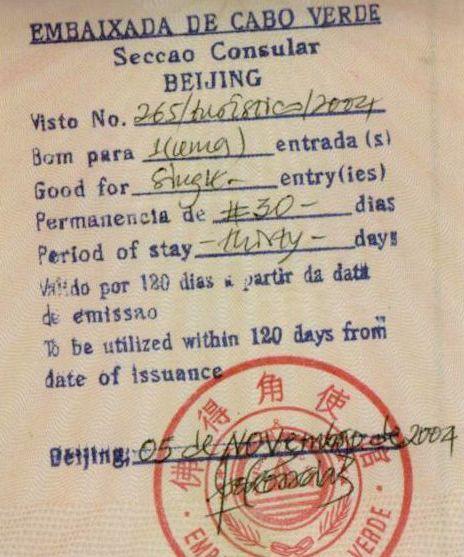 EMBAIXADA DE CABO VERDE
Seccao Consular
BEIJING
Visto No. 265/turística/2004
Bom para 1(uma) entrada(s)
Good for Single- entry(ies)
Permanencia de #30- dias
Period of stay -thirty- days
Valido por 120 dias a partir da data
de emissao
To be utilized within 120 days from
date of issuance
Beijing, 05 de Novembro de 2004
佛得角使館
EMB VERDE